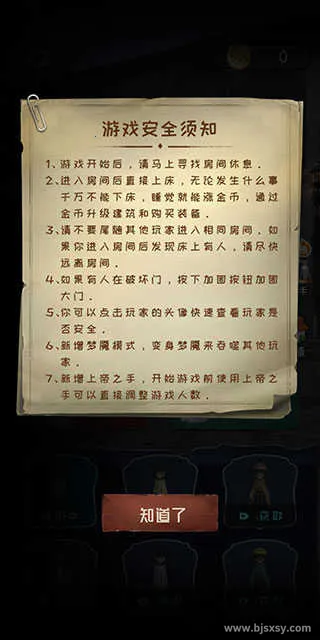 0
游戏安全须知
1、游戏开始后，请马上寻找房间休息．
2、进入房间后直接上床，无论发生什么事
千万不能下床，睡觉就能涨金币，通过
金币升级建筑和购买装备．
3、请不要尾随其他玩家进入相同房间．如
果你进入房间后发现床上有人，请尽快
远离房间．
4、如果有人在破坏门，按下加固按钮加固
大门．
5、你可以点击玩家的头像快速查看玩家是
否安全．
6、新增梦魇模式，变身梦魇来吞噬其他玩
家．
7、新增上帝之手，开始游戏前使用上帝之
手可以直接调整游戏人数．
知道了
www.bjsxsy.com